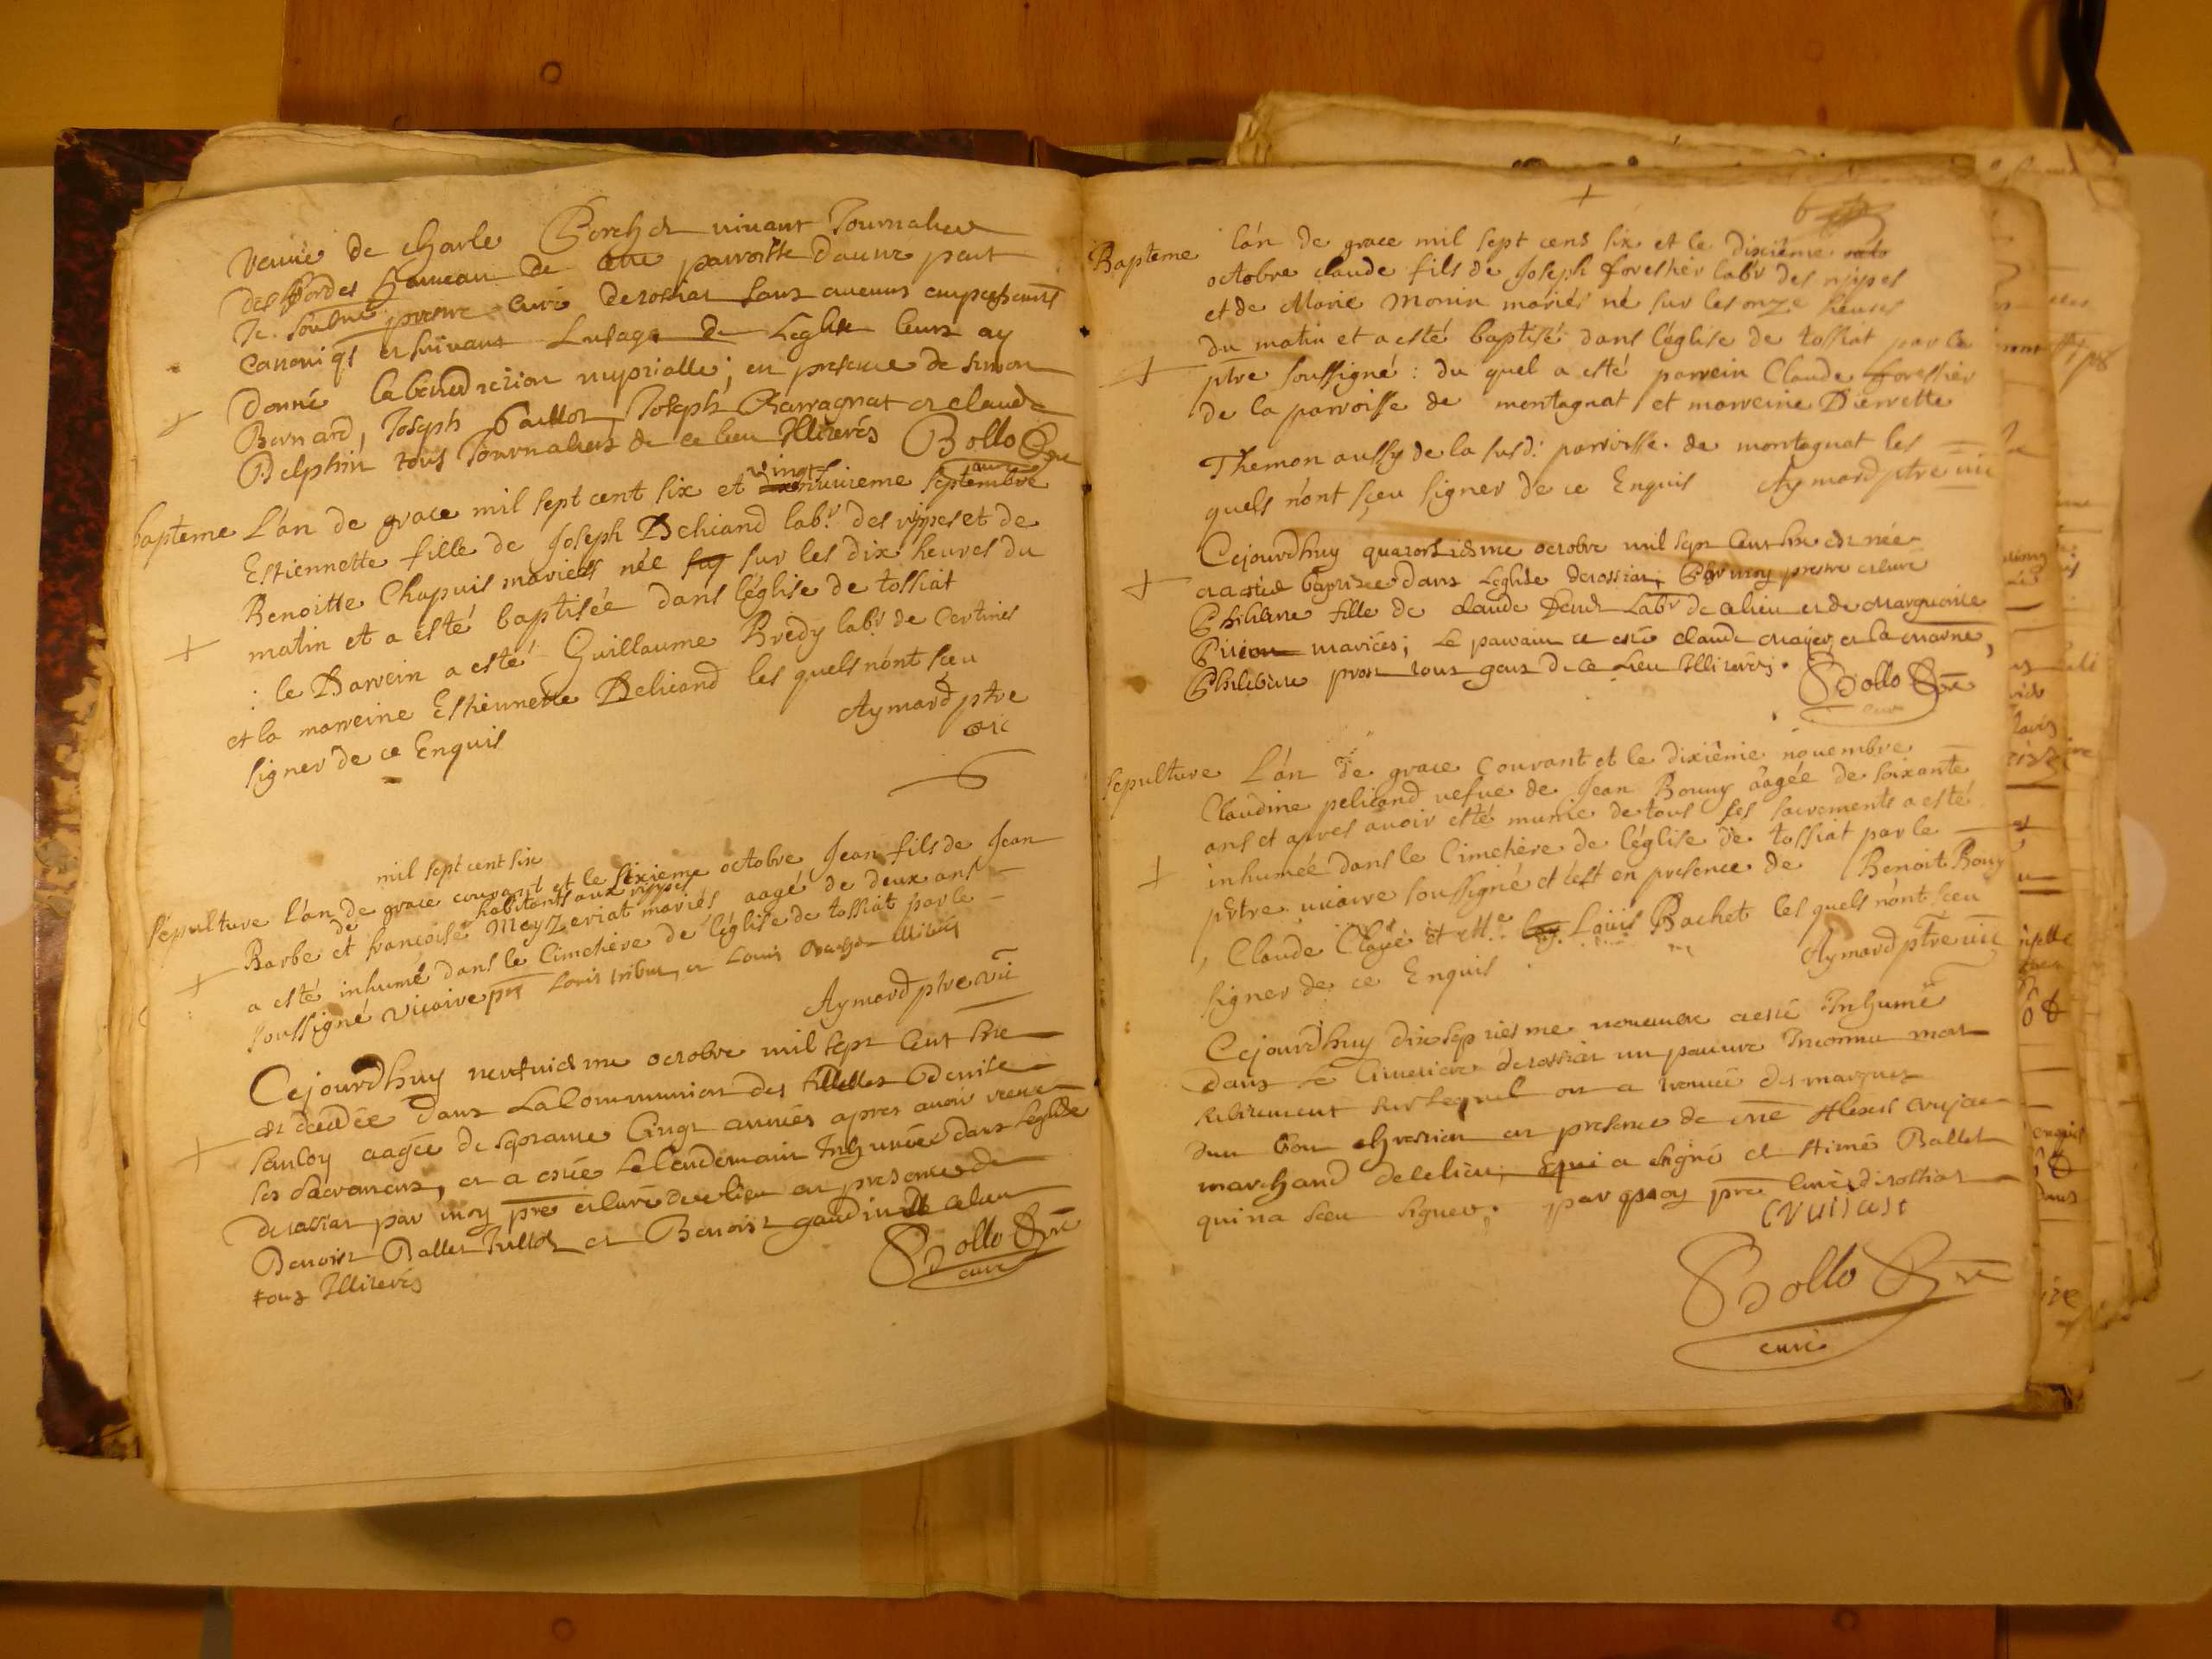 veuve de charle Perchet vivant Journalier
des bordes hameau de cette parroisse d'autre part
Je soubné prestre curé detossiat sans aucuns empeschemts
canoniqs et suivant Lusage de Leglise leurs ay
donné la benediction nuptialle; en presence de simon
Bernard, Joseph Paillot Joseph Charragnat et claude
Belphin tous Journaliers de ce lieu Illiterés Bollo Pre
curé
vingt
bapteme L'an de grace mil sept cent six et neuvieme septembre
Estiennette fille de Joseph Pelicand labr. des rippes et de
Benoitte Chapuis mariés née sur les dix heures du
matin et a esté baptisée dans l'église de tossiat
: le Parrein a esté Guillaume Bredy labr de Certines
et la marreine Estiennette Pelicand les quels n'ont sçeu
signer de ce Enquis Aymard ptre
vic
mil sept cent six
sépulture l'an de grace courant et le sixieme octobre Jean fils de Jean
habitants aux rippes
Barbe et de françoise Meyzeriat mariés aagé de deux ans
a esté inhumé dans le Cimetière de l'église de tossiat par le
soussigné vicaire pnt Louis tribut, et Louis Illiterés
Aymard ptre vic
Cejourdhuy neufviesme octobre mil sept Cent six
est decedée dans La Communion des fidelles Denise
sanloy aagée de septante Cinqt années apres avoir receu
ses sacremens, et a estée Lelendemain Inhumée dans leglise
detossiat par moy pre et curé de ce lieu en presence de
Benoist Ballet Tullot et Benoist gaudin de celieu
tous Illiterés Bollo Pre
curé
6
Bapteme l'an de grace mil sept cens six et le dixiéme
octobre claude fils de Joseph forestier labr des rippes
et de Marie Monin mariés né sur les onze heures
du matin et a esté baptisé dans l'église de tossiat par le
ptre soussigné: du quel a esté parrein Claude forestier
de la parroisse de montagnat et marreine Pierrette
Themon aussy de la susd: parroisse de montagnat les
quels n'ont sçeu signer de ce Enquis Aymard ptre vic
Cejourdhuy quatorsiesme octobre mil sept Cent six est née
et a estée baptisée dans Leglise detossiat Par moy prestre et curé
Philiberte fille de claude Labr de celieu et de Marguerite
Pirion mariées; Le parrain ce esté claude Mayer et la Marne,
Philiberte prost tous gens de ce Lieu Illiterés. Bollo Pre
curé
sepulture L'an de grace Courant et le dixiême novembre
Claudine pelicand vefve de Jean Bouny âagée de soixante
ans et apres avoir esté munie de tous ses sacrements a esté
inhumée dans le Cimetière de l'église de tossiat par le
prêtre vicaire soussigné et c'est en presence de Benoit Bouy
, Claude Cloyé et Me Louis Bachet les quels n'ont sceu
signer de ce Enquis Aymard ptre vic
Cejourdhuy dixseptiesme novembre aesté Inhumé
dans le Cimetiere detossiat un pauvre Inconnu mort
subitement sur Lequel on a trouvé des marques
dun bon chrestien en presence de Me Alexis crujat
marchand decelieu, qui a signé et Aimé Ballet
quina sceu signer. par moy pre curé de tossiat
Cruisast
Bollo Pre
curé